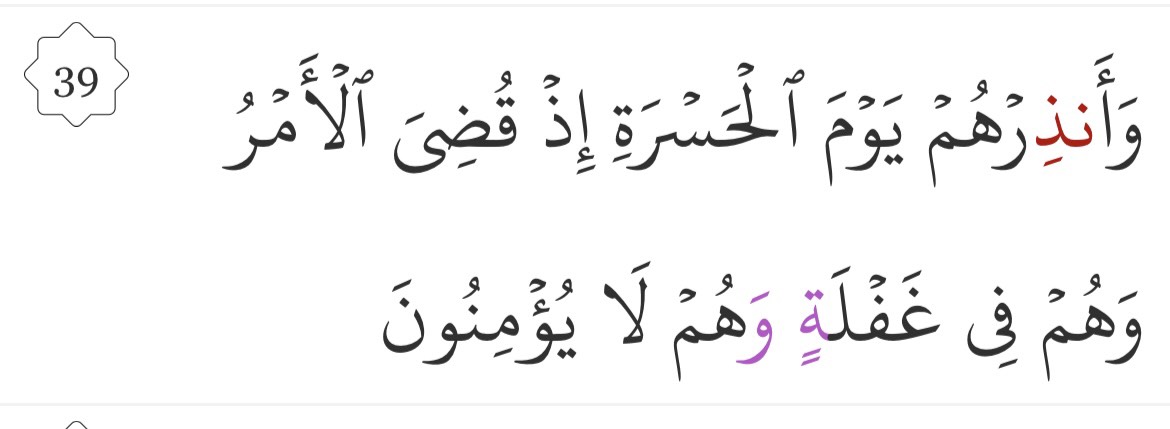 وَأَنذِرْهُمْ يَوْمَ ٱلْحَسْرَةِ إِذْ قُضِىَ ٱلْأَمْرُ 39
وَهُمْ فِى غَفْلَةٍ وَهُمْ لَا يُؤْمِنُونَ